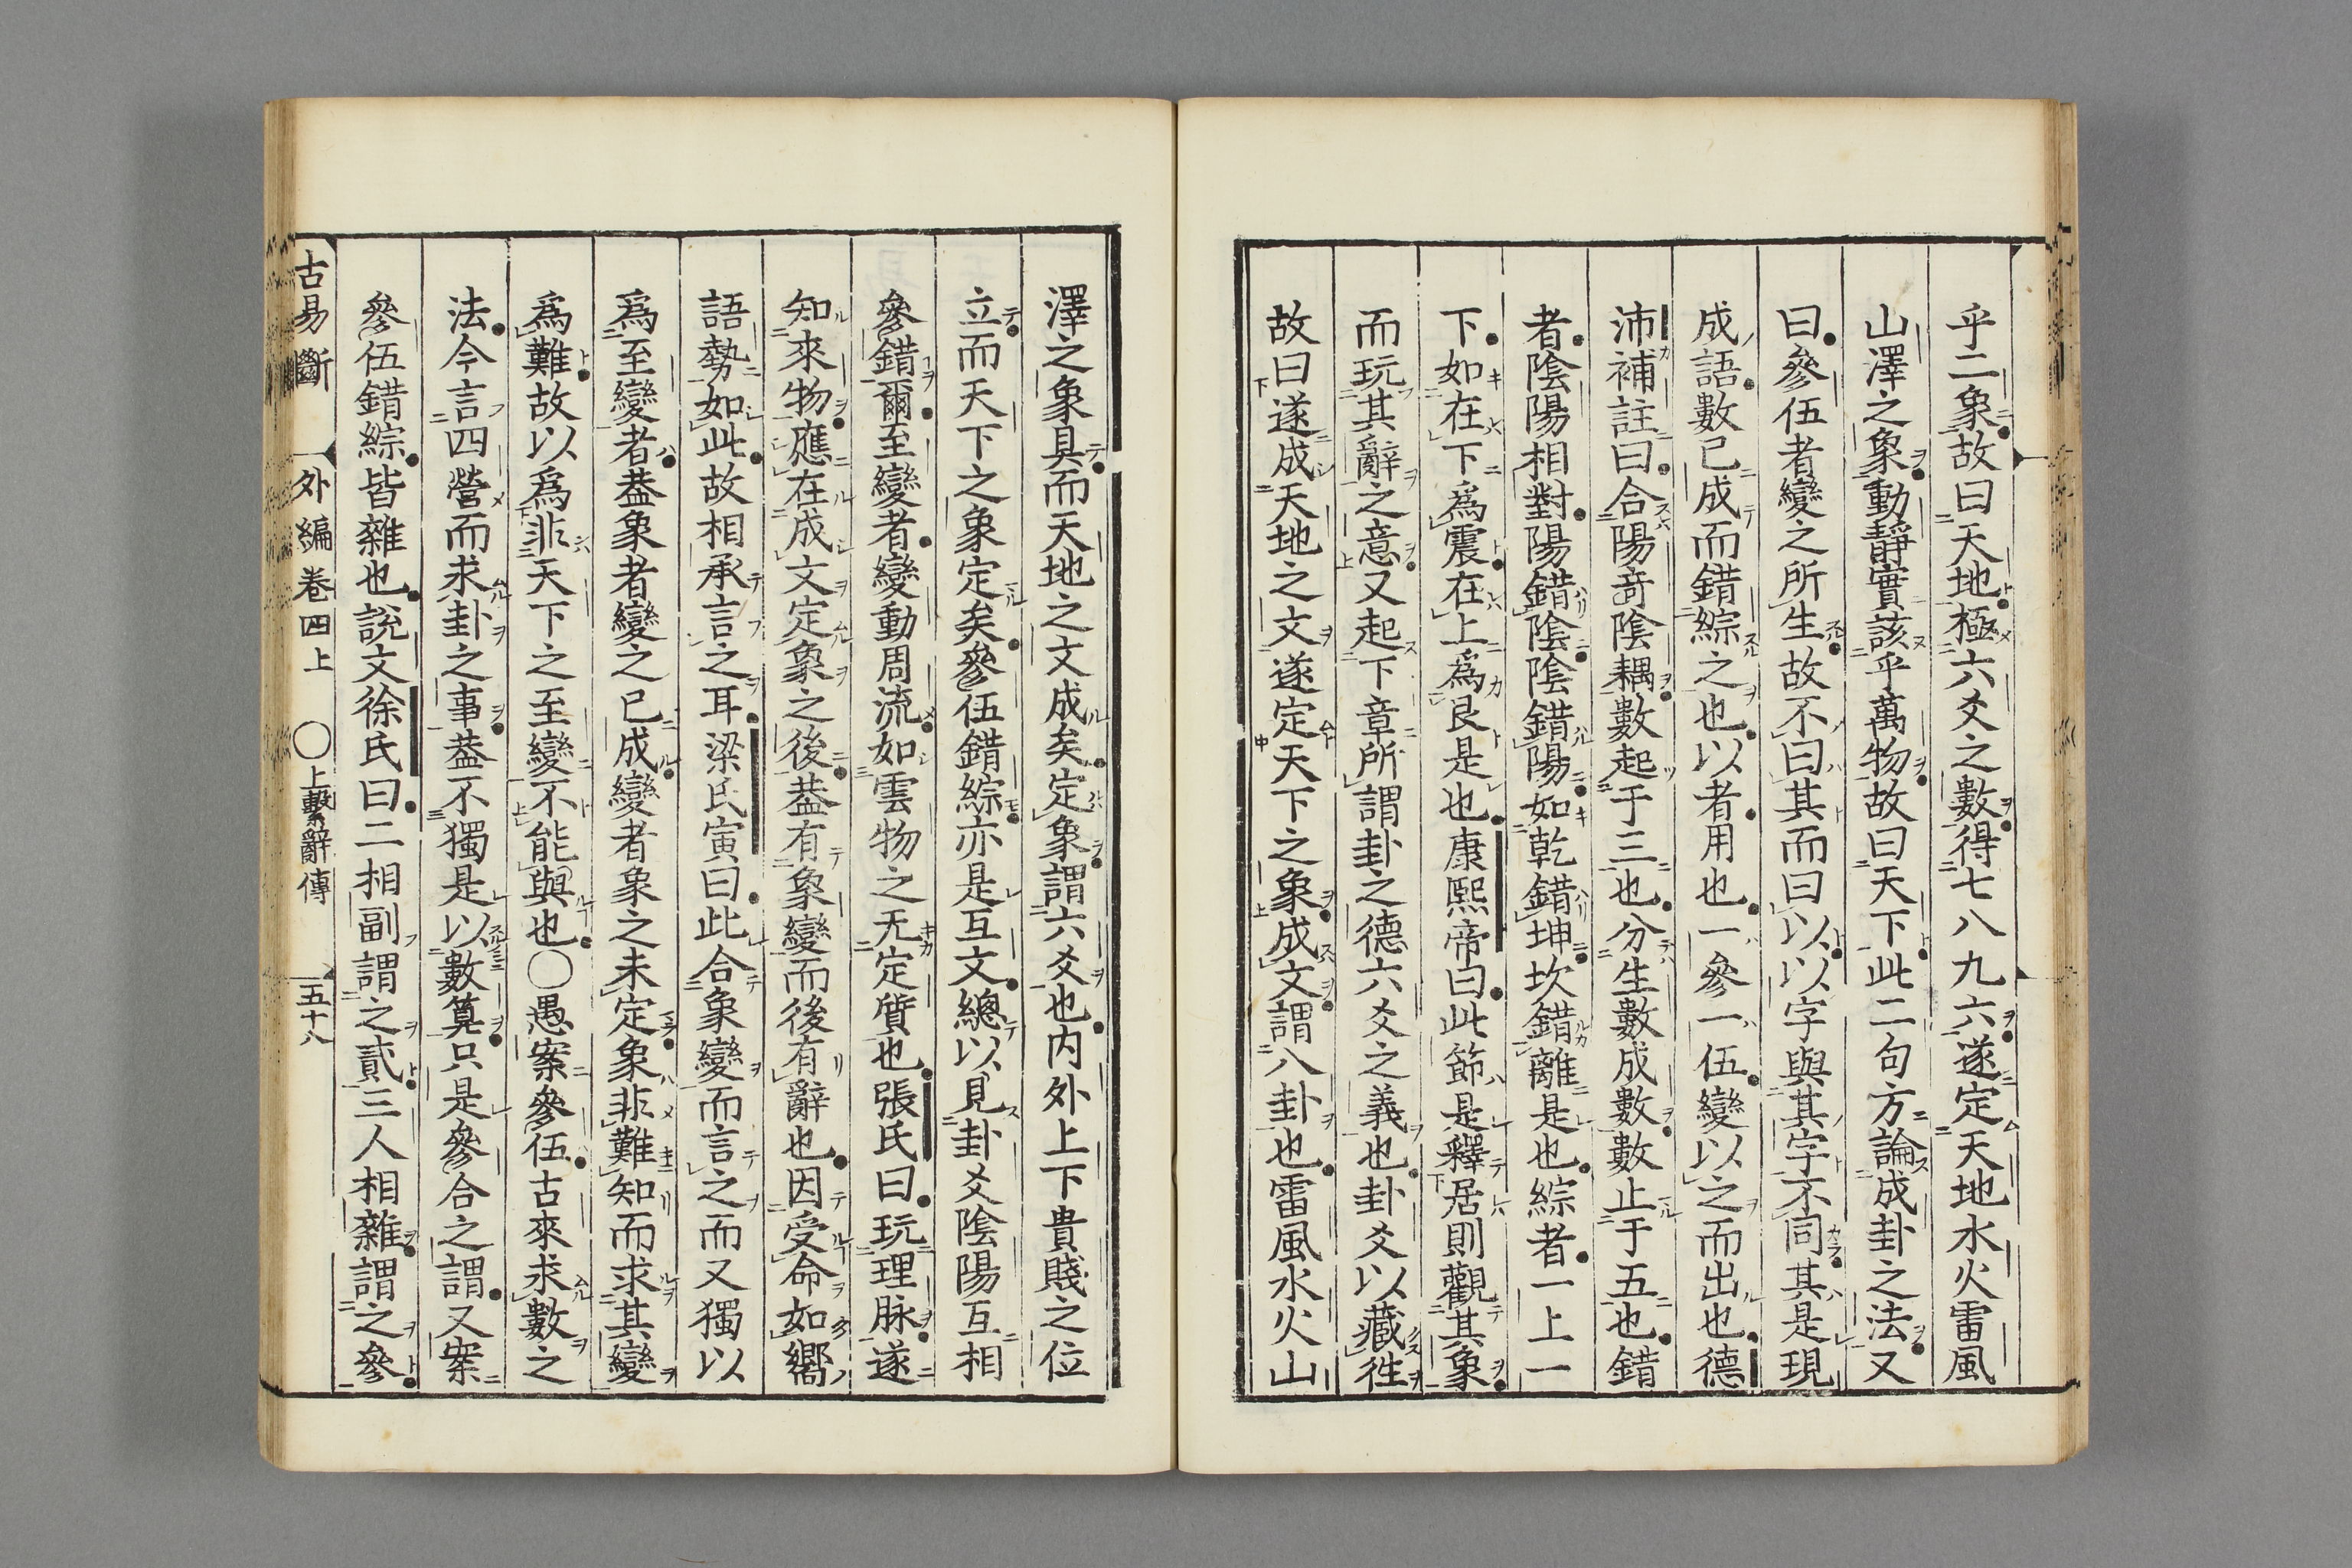 乎二象故曰天地極六爻之數得七八九六遂定天地水火雷風
山澤之象動靜實該乎萬物故曰天下此二句方論成卦之法又
曰參伍者變之所生故不曰其而曰以以字與其字不同其是現
成語數已成而錯綜之也以者用也一參一伍變以之而出也德
沛補註曰合陽奇陰耦數起于三也分生數成數數止于五也錯
者陰陽相對陽錯陰陰錯陽如乾錯坤坎錯離是也綜者一上一
下如在下爲震在上爲艮是也康熙帝曰此節是釋居則觀其象
而玩其辭之意又起下章所謂卦之德六爻之義也卦爻以藏往
故曰遂成天地之文遂定天下之象成文謂八卦也雷風水火山
澤之象具而天地之文成矣定象謂六爻也内外上下貴賤之位
立而天下之象定矣參伍錯綜亦是互文總以見卦爻陰陽互相
參錯爾至變者變動周流如雲物之无定質也張氏曰玩理脉遂
知來物應在成文定象之後葢有象變而後有辭也因受命如嚮
語勢如此故相承言之耳梁氏寅曰此合象變而言之而又獨以
爲至變者葢象者變之已成變者象之未定象非難知而求其變
爲難故以爲非天下之至變不能與也○愚案參伍古來求數之
法今言四營而求卦之事葢不獨是以數算只是參合之謂又案
參伍錯綜皆雜也説文徐氏曰二相副謂之貳三人相雜謂之參
古易斷　外編卷四上　○上繫辭傳　五十八